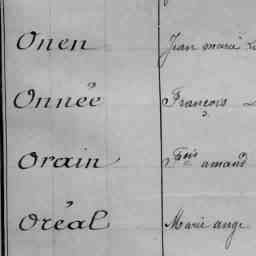 Onen Jean marie
Onnée François
Orain Fois amand
Oréal Marie ange